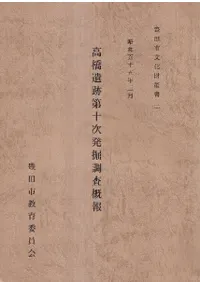 豊田市文化財叢書 二
昭和五十六年三月
高橋遺跡第十次発掘調査概報
豊田市教育委員会